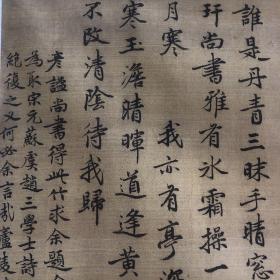 誰是丹青三昧手晴窓
玕尚書雅有氷霜操一
月寒 我亦有亭深
寒玉澹晴暉道逢黄
不改清陰待我歸
彦謐尚書得此竹求余題
為取宋元蘇虞趙三學士詩
絶復之又何必余言哉廬陵